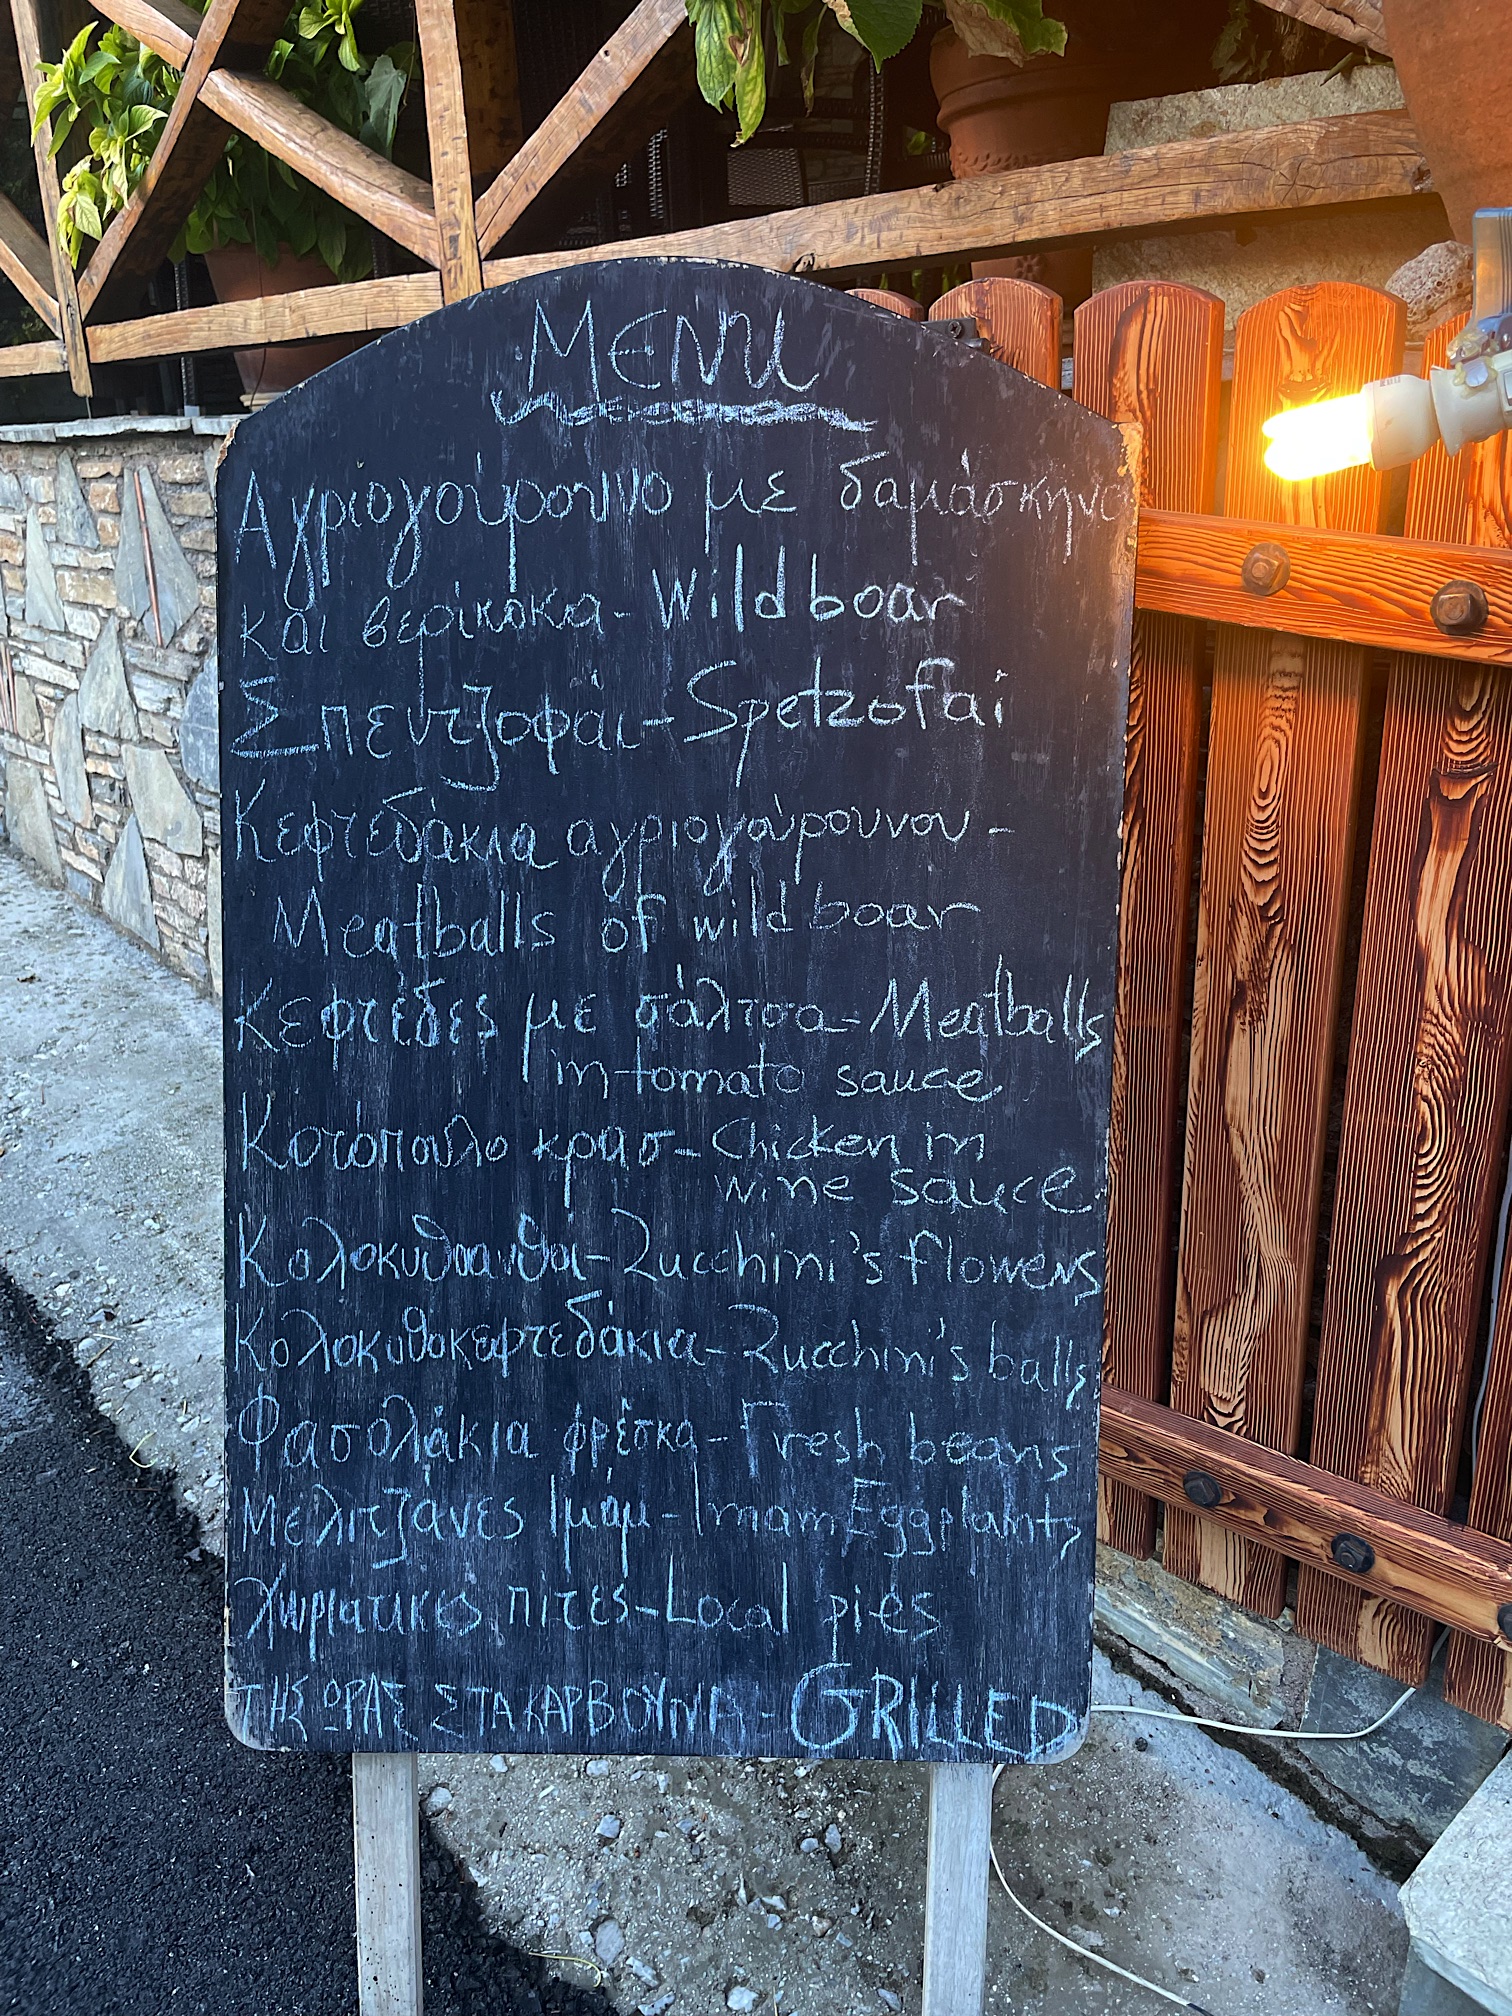 MENU
Αγριογούρουνο με δαμάσκηνα
και βερίκοκα - Wild boar
Σπεντζοφάι - Spetzofai
Κεφτεδάκια αγριογούρουνου -
Meatballs of wild boar
Κεφτέδες με σάλτσα - Meatballs
in tomato sauce
Κοτόπουλο κρασ - Chicken in
wine sauce
Κολοκυθοανθοι - Zucchini's flowers
Κολοκυθοκεφτεδάκια - Zucchini's balls
Φασολάκια φρέσκα - Fresh beans
Μελιτζάνες Ιμάμ - Imam Eggplants
Χωριάτικες πίτες - Local pies
ΤΗΣ ΩΡΑΣ ΣΤΑ ΚΑΡΒΟΥΝΑ - GRILLED